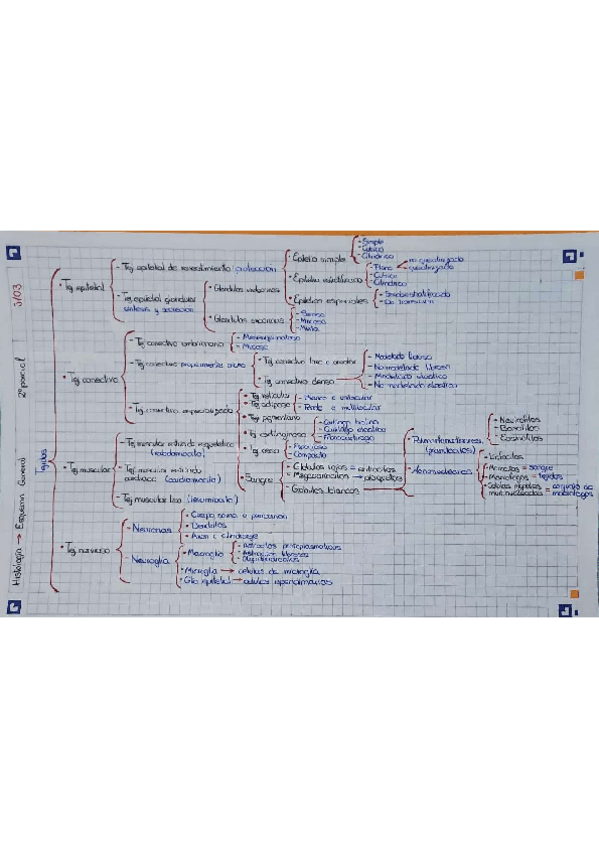 Histología → Esquema General
2º parcial
5/03
Tejidos
• Tej epitelial
- Tej epitelial de revestimiento protección
• Epitelio simple
- Simple
- Cúbico
- Cilíndrico
• Epitelio estratificado
- Plano
no queratinizado
queratinizado
- Cúbico
- Cilíndrico
• Epitelios especiales
- Seudoestratificado
- De transición
- Tej epitelial glandular
síntesis y secreción
• Glándulas endocrinas
• Glándulas exocrinas
- Serosa
- Mucosa
- Mixta
• Tej conectivo
- Tej conectivo embrionario
- Mesenquimatoso
- Mucoso
- Tej conectivo propiamente dicho
• Tej conectivo laxo o areolar
• Tej conectivo denso
- Modelado fibroso
- No modelado fibroso
- Modelado elástico
- No modelado elástico
- Tej conectivo especializado
• Tej reticular
• Tej adiposo
- Blanco o unilocular
- Pardo o multilocular
• Tej pigmentario
• Tej cartilaginoso
- Cartílago hialino
- Cartílago elástico
- Fibrocartílago
• Tej óseo
- Esponjoso
- Compacto
• Sangre
- Glóbulos rojos = eritrocitos
- Megacariocitos → plaquetas
- Glóbulos blancos
• Polimorfonucleares
(granulocitos)
- Neutrófilos
- Basófilos
- Eosinófilos
• Mononucleares
- Linfocitos
- Monocitos = sangre
- Macrófagos = tejidos
- Células gigantes = conjunto de
multinucleadas macrófagos
• Tej muscular
- Tej muscular estriado esquelético
(rabdomiocito)
- Tej muscular estriado
cardíaco (cardiomiocito)
- Tej muscular liso (leiomiocito)
• Tej nervioso
- Neuronas
• Cuerpo soma o pericarion
• Dendritas
• Axón o cilindroeje
- Neuroglia
• Macroglia
- Astrocitos protoplasmáticos
- Astrocitos fibrosos
- Oligodendrocitos
• Microglia → células de microglia
• Glia epitelial → células ependimarias